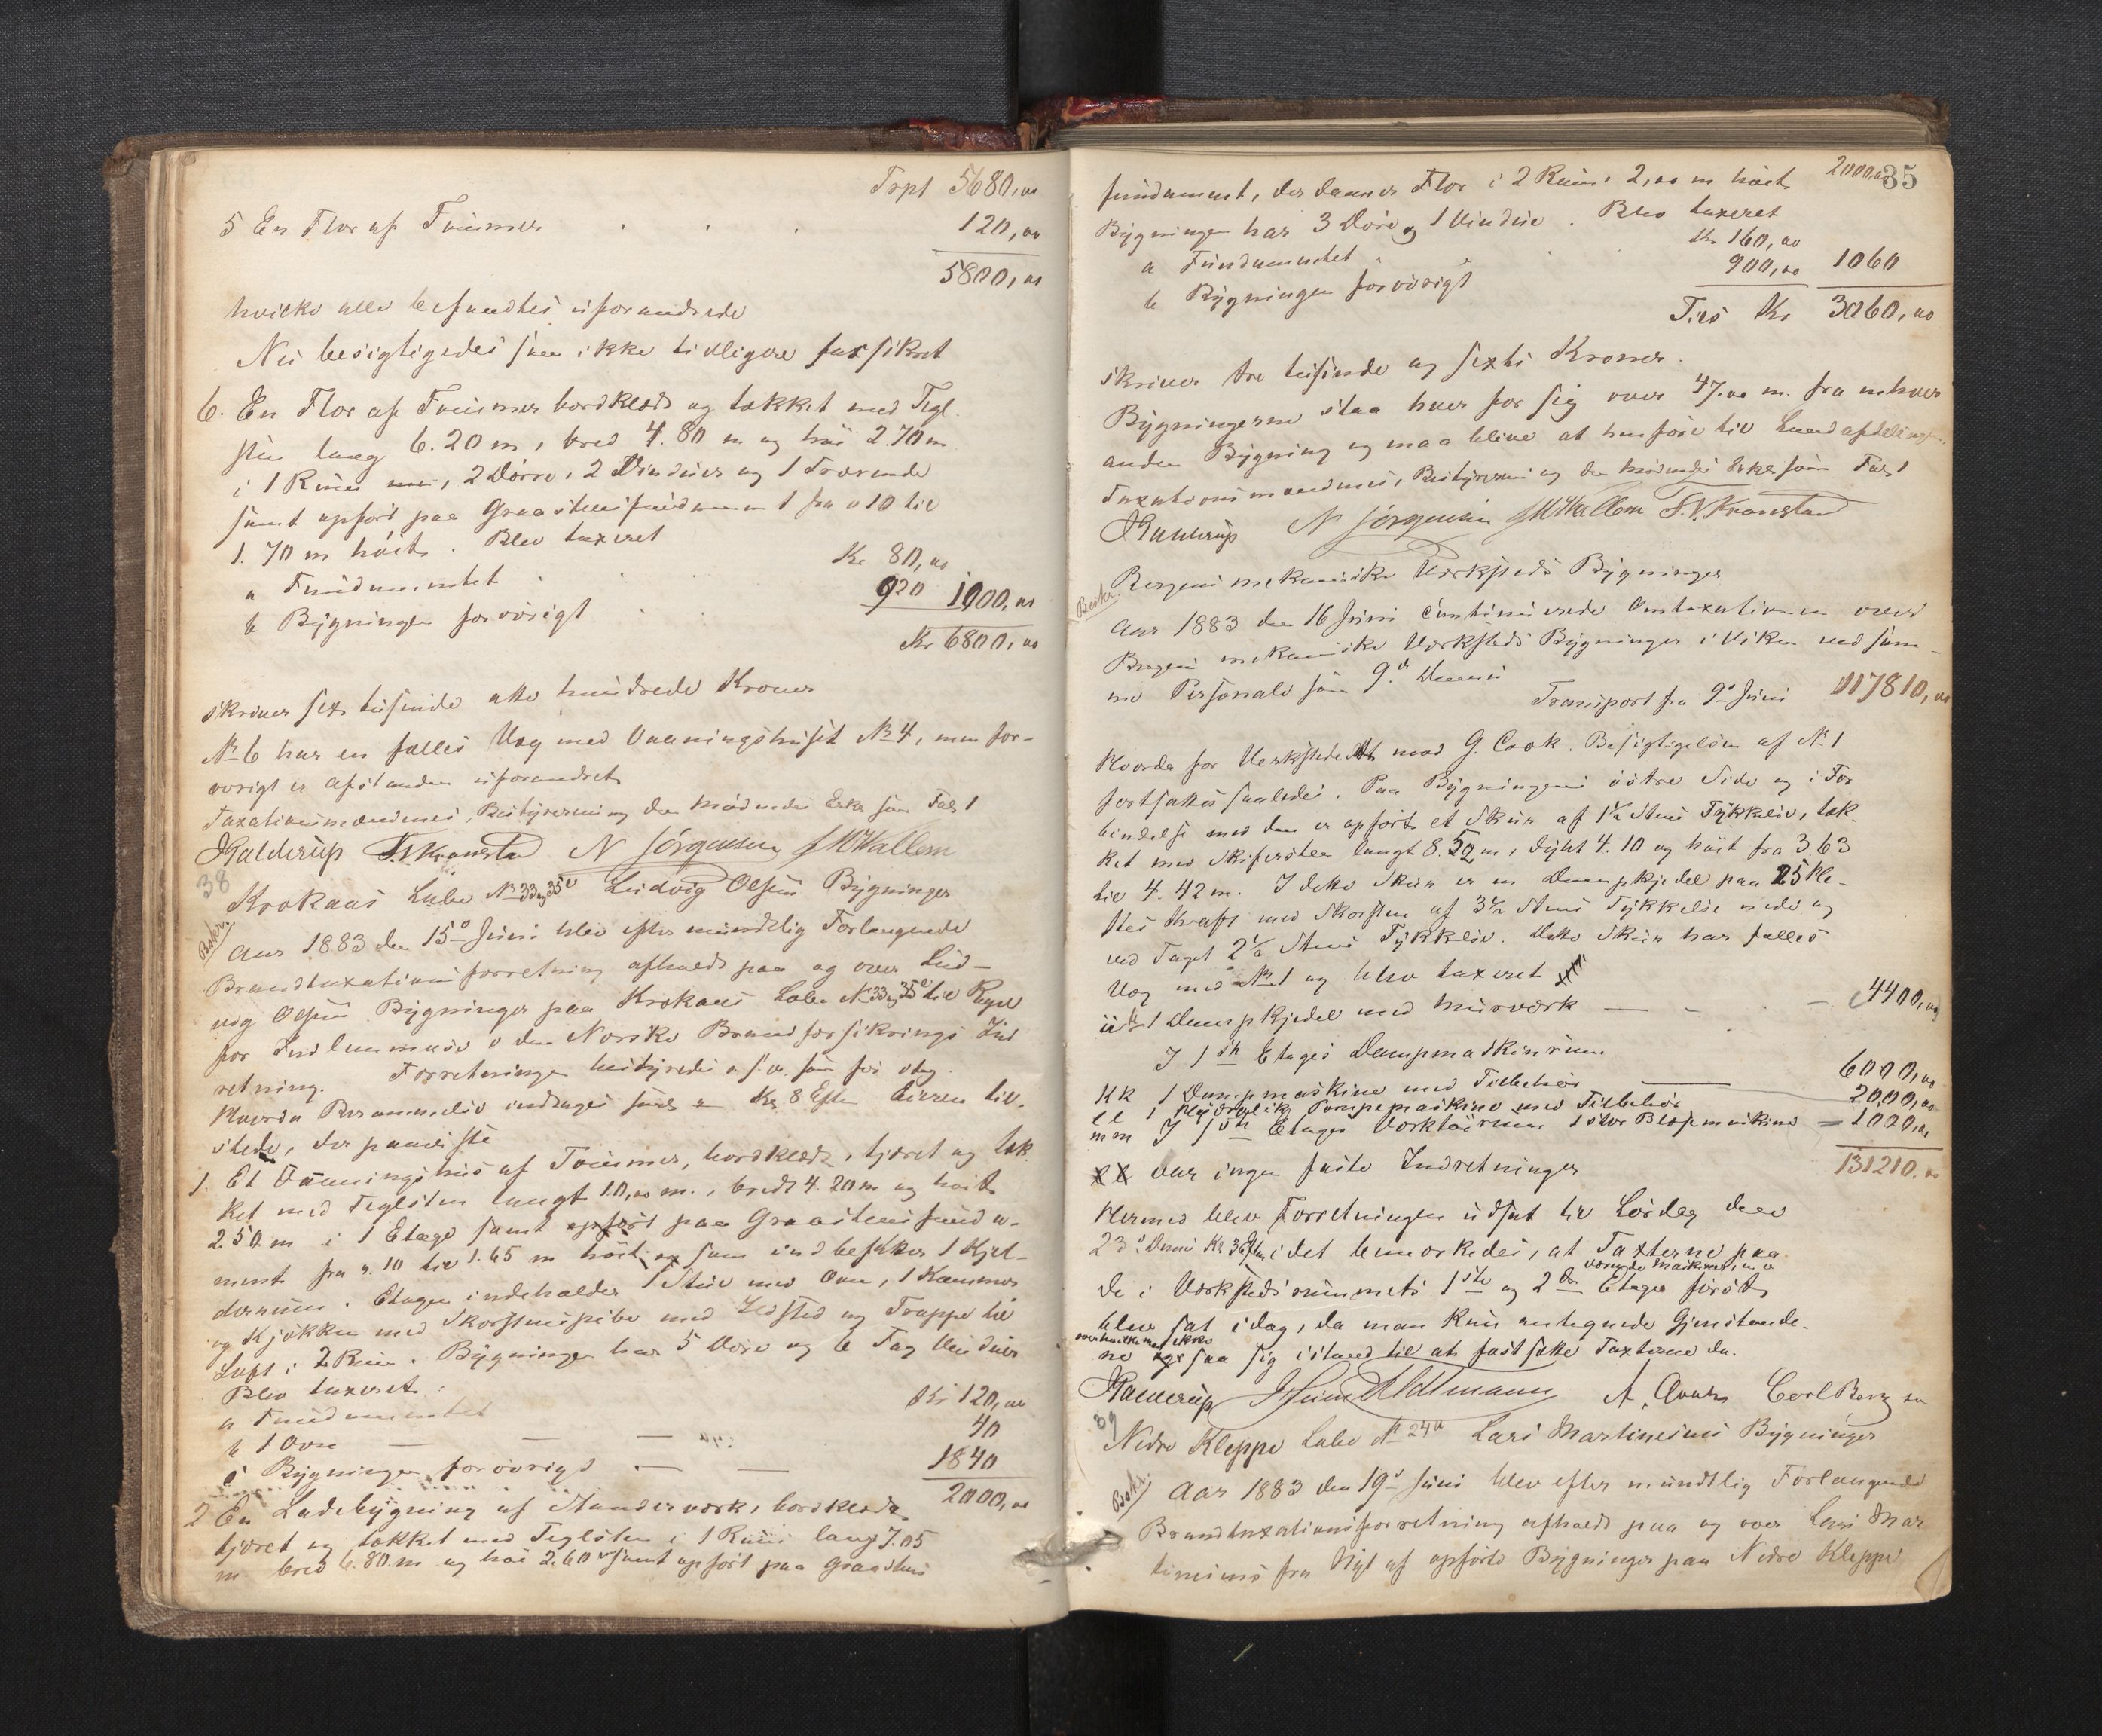 Trpt 5680,00
5 En Flor af Tømmer 120,00
5800,00
hvilke alle befandtes uforandrede
Nu besigtigedes som ikke tidligere forsikret
6. En Flor af Tømmer bordklædt og tækket med Tegl-
sten lang 6.20 m, bred 4.80 m og høi 2.70 m
i 1 Rum med, 2 Dørre, 2 Vinduer og 1
samt opført paa Graastensfundament fra 0 10 til
1.70 m høit. Blev taxeret
a Fundamentet Kr 80,00
b Bygningen forøvrigt 920 1000,00
Kr 6800,00
skriver sex tusinde otte hundrede Kroner
No 6 har en fælles Væg med Vaaningshuset No 4, men for-
øvrigt er Afstanden uforandret
Taxationsmændenes, Bestyreren og den mødende som Fol 1
Kalderup N Jørgensen
38
Krokaas Løbe No 33 og 35 Ludvig Olsens Bygninger
Aar 1883 den 15de Juni blev efter mundtlig Forlangende
Brandtaxationsforretning afholdt paa og over Lud-
vig Olsens Bygninger paa Krokaas Løbe No 33 og 35 til Brug
for Indlemmelse i den Norske Brandforsikrings Ind
retning. Forretningen bestyredes o.s.v. som foi
Hvorda indtages Kl 8 Eftm til-
stede, der paaviste
1. Et Vaaningshus af Tømmer, bordklædt, tjæret og tæk-
ket med Teglsten langt 10,00 m., bredt 4.20 m og høit
2.50 m i 1 Etage samt opført paa Graastensfunda-
ment fra 0.10 til 1.65 m høit og som indbefatter 1 Kjel-
derrum. Etagen indeholder 1 Stue med Ovn, 1 Kammer
og Kjøkken med Skorstenspibe med Ildsted og Trappe til
Loft i 2 Rum. Bygningen har 5 Døre og 6 Fag Vinduer
Blev taxeret:
a Fundamentet Kr 120,00
b 1 Ovn 40
c Bygningen forøvrigt 1840
2000,00
2 En Ladebygning af Standerværk, bordklædt
tjæret og tækket med Teglsten i 1 Rum lang 7.05
m bred 6.80 m og høi 2.60 samt opført paa Graastens
35
2000,00
fundament, der danner Flor i 2 Rum 2,00 m høit
Bygningen har 3 Døre og 1 Vindue. Blev taxeret
a Fundamentet Kr 160,00
b Bygningen forøvrigt 900,00 1060
Tils Kr 3060,00
skriver tre tusinde og sexti Kroner.
Bygningerne staa hver for sig over 47.00 m. fra enhver
anden Bygning og maa blive at henføre til Landafdelingen.
Taxationsmændenes, Bestyreren og den mødendes som Fol 1
Kalderup N Jørgensen
Bergens mekaniske Værksteds Bygninger
Aar 1883 den 16 Juni continuerede Omtaxationen over
Bergens mekaniske Værksteds Bygninger i Viken ved sam-
me Personale som 9de Dennes
Transport fra 9de Juni 117810,00
Hvorda for Verkstedet mød G. Cook. Besigtigelsen af No 1
fortsattes saaledes. Paa Bygningens østre Side og i For
bindelse med den er opført et Skur af 1½ Stens Tykkelse, tæk-
ket med Skifersten langt 8.52 m, dybt 4.10 og høit fra 3.63
til 4.42 m. I dette Skur er en Dampkjedel paa 25 He-
stes Kraft med Skorsten af 3½ Stens Tykkelse nede og
ved Taget 2½ Stens Tykkelse. Dette Skur har fælles
Væg med No 1 og blev taxeret
1 Dampkjedel med Murværk 4400,00
I 1ste Etages Dampmaskinrum
kk 1 Dampmaskine med Tilbehør 6000,00
ll 1 Pompemaskine med Tilbehør 2000,00
mm I 1ste Etages 1 stor Blæsemaskine 1000,00
131210.00
var ingen faste Indretninger
Hermed blev Forretningen udsat til Lørdag den
23de Dennes Kl 3 Eftm, idet bemærkedes, at Taxterne paa
værende Maskiner
de i Værkstedsrummets 1ste og 2den Etager først
blev sat idag, da man kun antegnede Gjenstande-
over hvilke man ikke
ne saa sig istand til at fastsætte Taxterne da.
Kalderup
39
Nedre Kleppe Løbe No 24a Lars Martinsens Bygninger
Aar 1883 den 19de Juni blev efter mundtlig Forlangende
Brandtaxationsforretning afholdt paa og over Lars Mar
tinsens fra Nyt af opførte Bygninger paa Nedre Kleppe